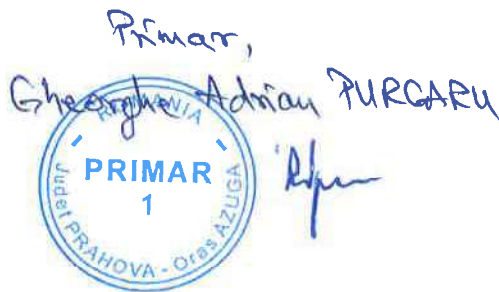 Primar,
Gheorghe Adrian PURGARU
ROMANIA
PRIMAR
1
Judeţ PRAHOVA - Oraş AZUGA